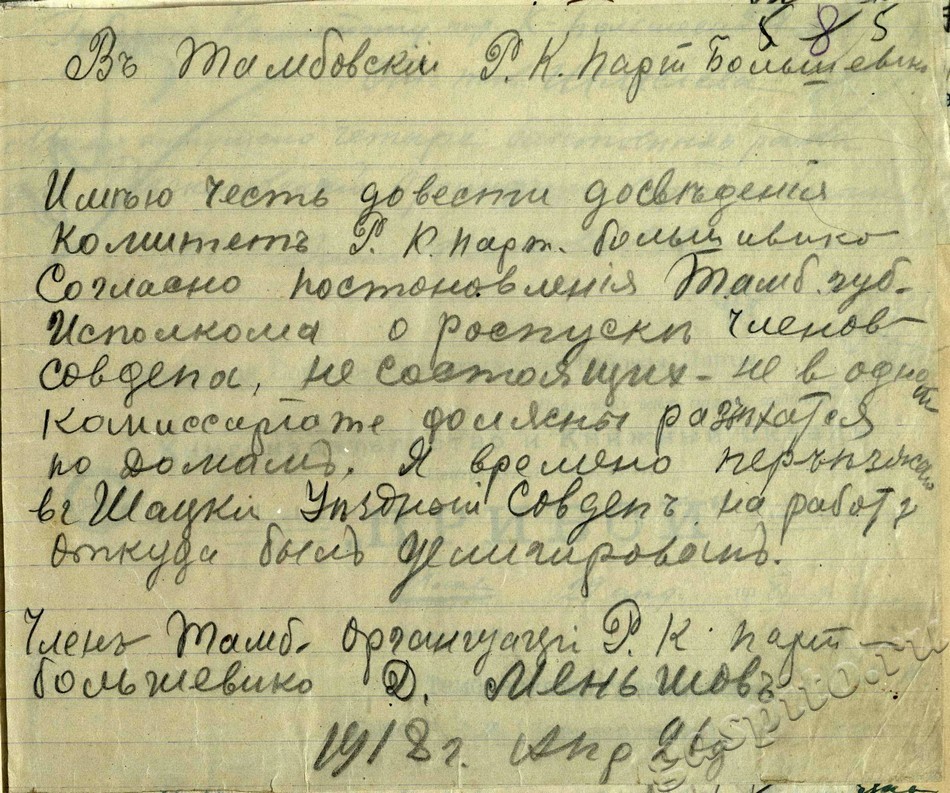 5 8 5
Въ Тамбовскiй Р. К. Парт Большевико
Имѣю честь довести досвѣденiя
Комитетъ Р. К. парт. большивико
Согласно постоновленiя Тамб. губ.
Исполкома о роспускѣ членов
совдепа, не состоящих - не в одном
комиссарiате должны разъѣхатся
по домамъ. Я времено
в г Шацкiй Уѣздный Совдепъ на работу
откуда былъ делигированъ.
Членъ Тамб. Организацiи Р. К. парт
большевико Д. Меньшовъ
1918 г. Апр 26 д